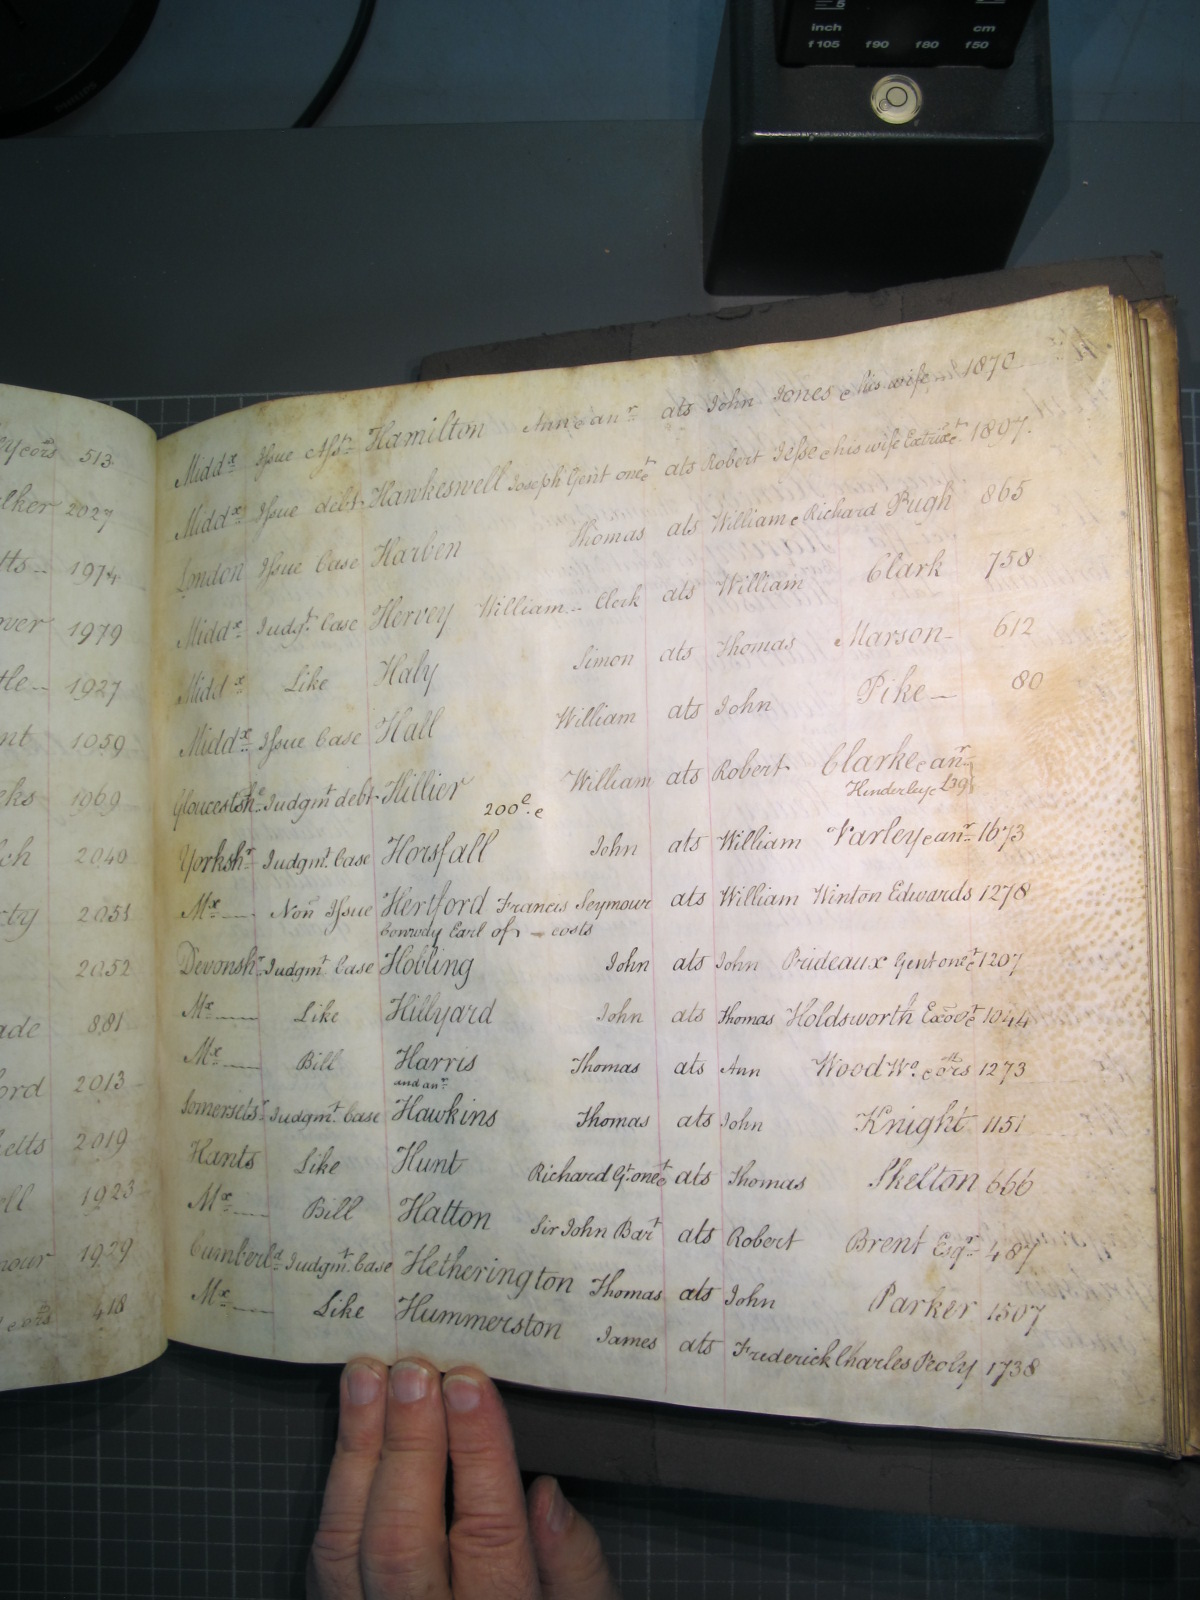 inch cm
f105 f90 f80 f50
PHILIPS
513
2027
1974
1979
1927
1059
1969
2040
2051
2052
881
2013
2019
1923
1929
418
Middx Issue Asst Hamilton Ann & anr ats John Jones & his wife 1870
Middx Issue debt Hawkeswell Joseph Gent one &ct ats Robert Jesse & his wife Extrix &ct 1807.
London Issue Case Harben Thomas ats William & Richard Pugh 865
Middx Judgt. Case Hervey William Clerk ats William Clark 758
Middx Like Haly Simon ats Thomas Marson 612
Middx Issue Case Hall William ats John Pike 80
Gloucestshe Judgmt debt Hillier William ats Robert Clarke & anr
200£. &
Yorkshr Judgmt. Case Horsfall John ats William Varley & anr 1673
Mx Non Issue Hertford Francis Seymour ats William Winton Edwards 1278
Conwdy Earl of costs
Devonshr Judgmt Case Hobling John ats John Prideaux Gent one &ct 1207
Mx Like Hillyard John ats Thomas Holdsworth Exõr &ct 1044
Mx Bill Harris Thomas ats Ann Wood Wo. & ors 1273
and anr
Somersetsr Judgmt. Case Hawkins Thomas ats John Knight 1151
Hants Like Hunt Richard Gt. one &ct ats Thomas Skelton 666
Mx Bill Hatton Sir John Bart ats Robert Brent Esqr 487
Cumberld Judgmt. Case Hetherington Thomas ats John Parker 1507
Mx Like Hummerston James ats Frederick Charles 1738